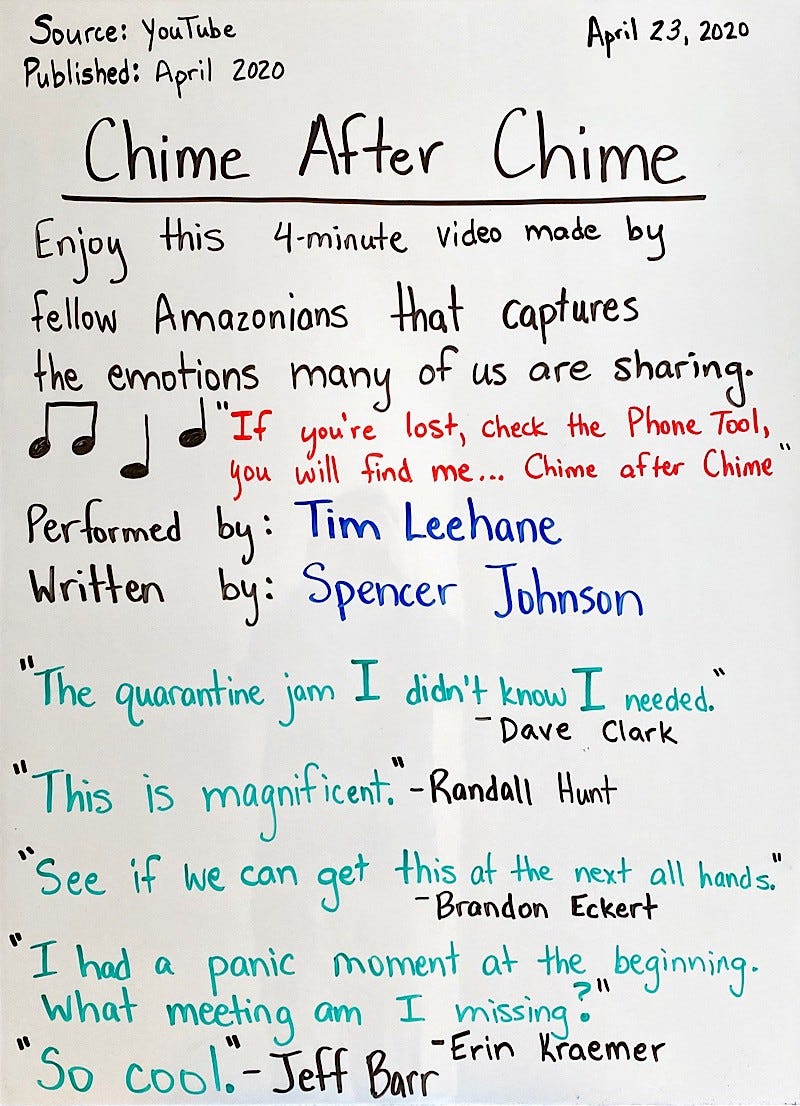 Source: YouTube
April 23, 2020
Published: April 2020
Chime After Chime
Enjoy this 4-minute video made by
fellow Amazonians that captures
the emotions many of us are sharing.
"If you're lost, check the Phone Tool,
you will find me... Chime after Chime"
Performed by: Tim Leehane
Written by: Spencer Johnson
"The quarantine jam I didn't know I needed."
-Dave Clark
"This is magnificent." -Randall Hunt
"See if we can get this at the next all hands."
-Brandon Eckert
"I had a panic moment at the beginning.
What meeting am I missing?"
-Erin Kraemer
"So cool." - Jeff Barr